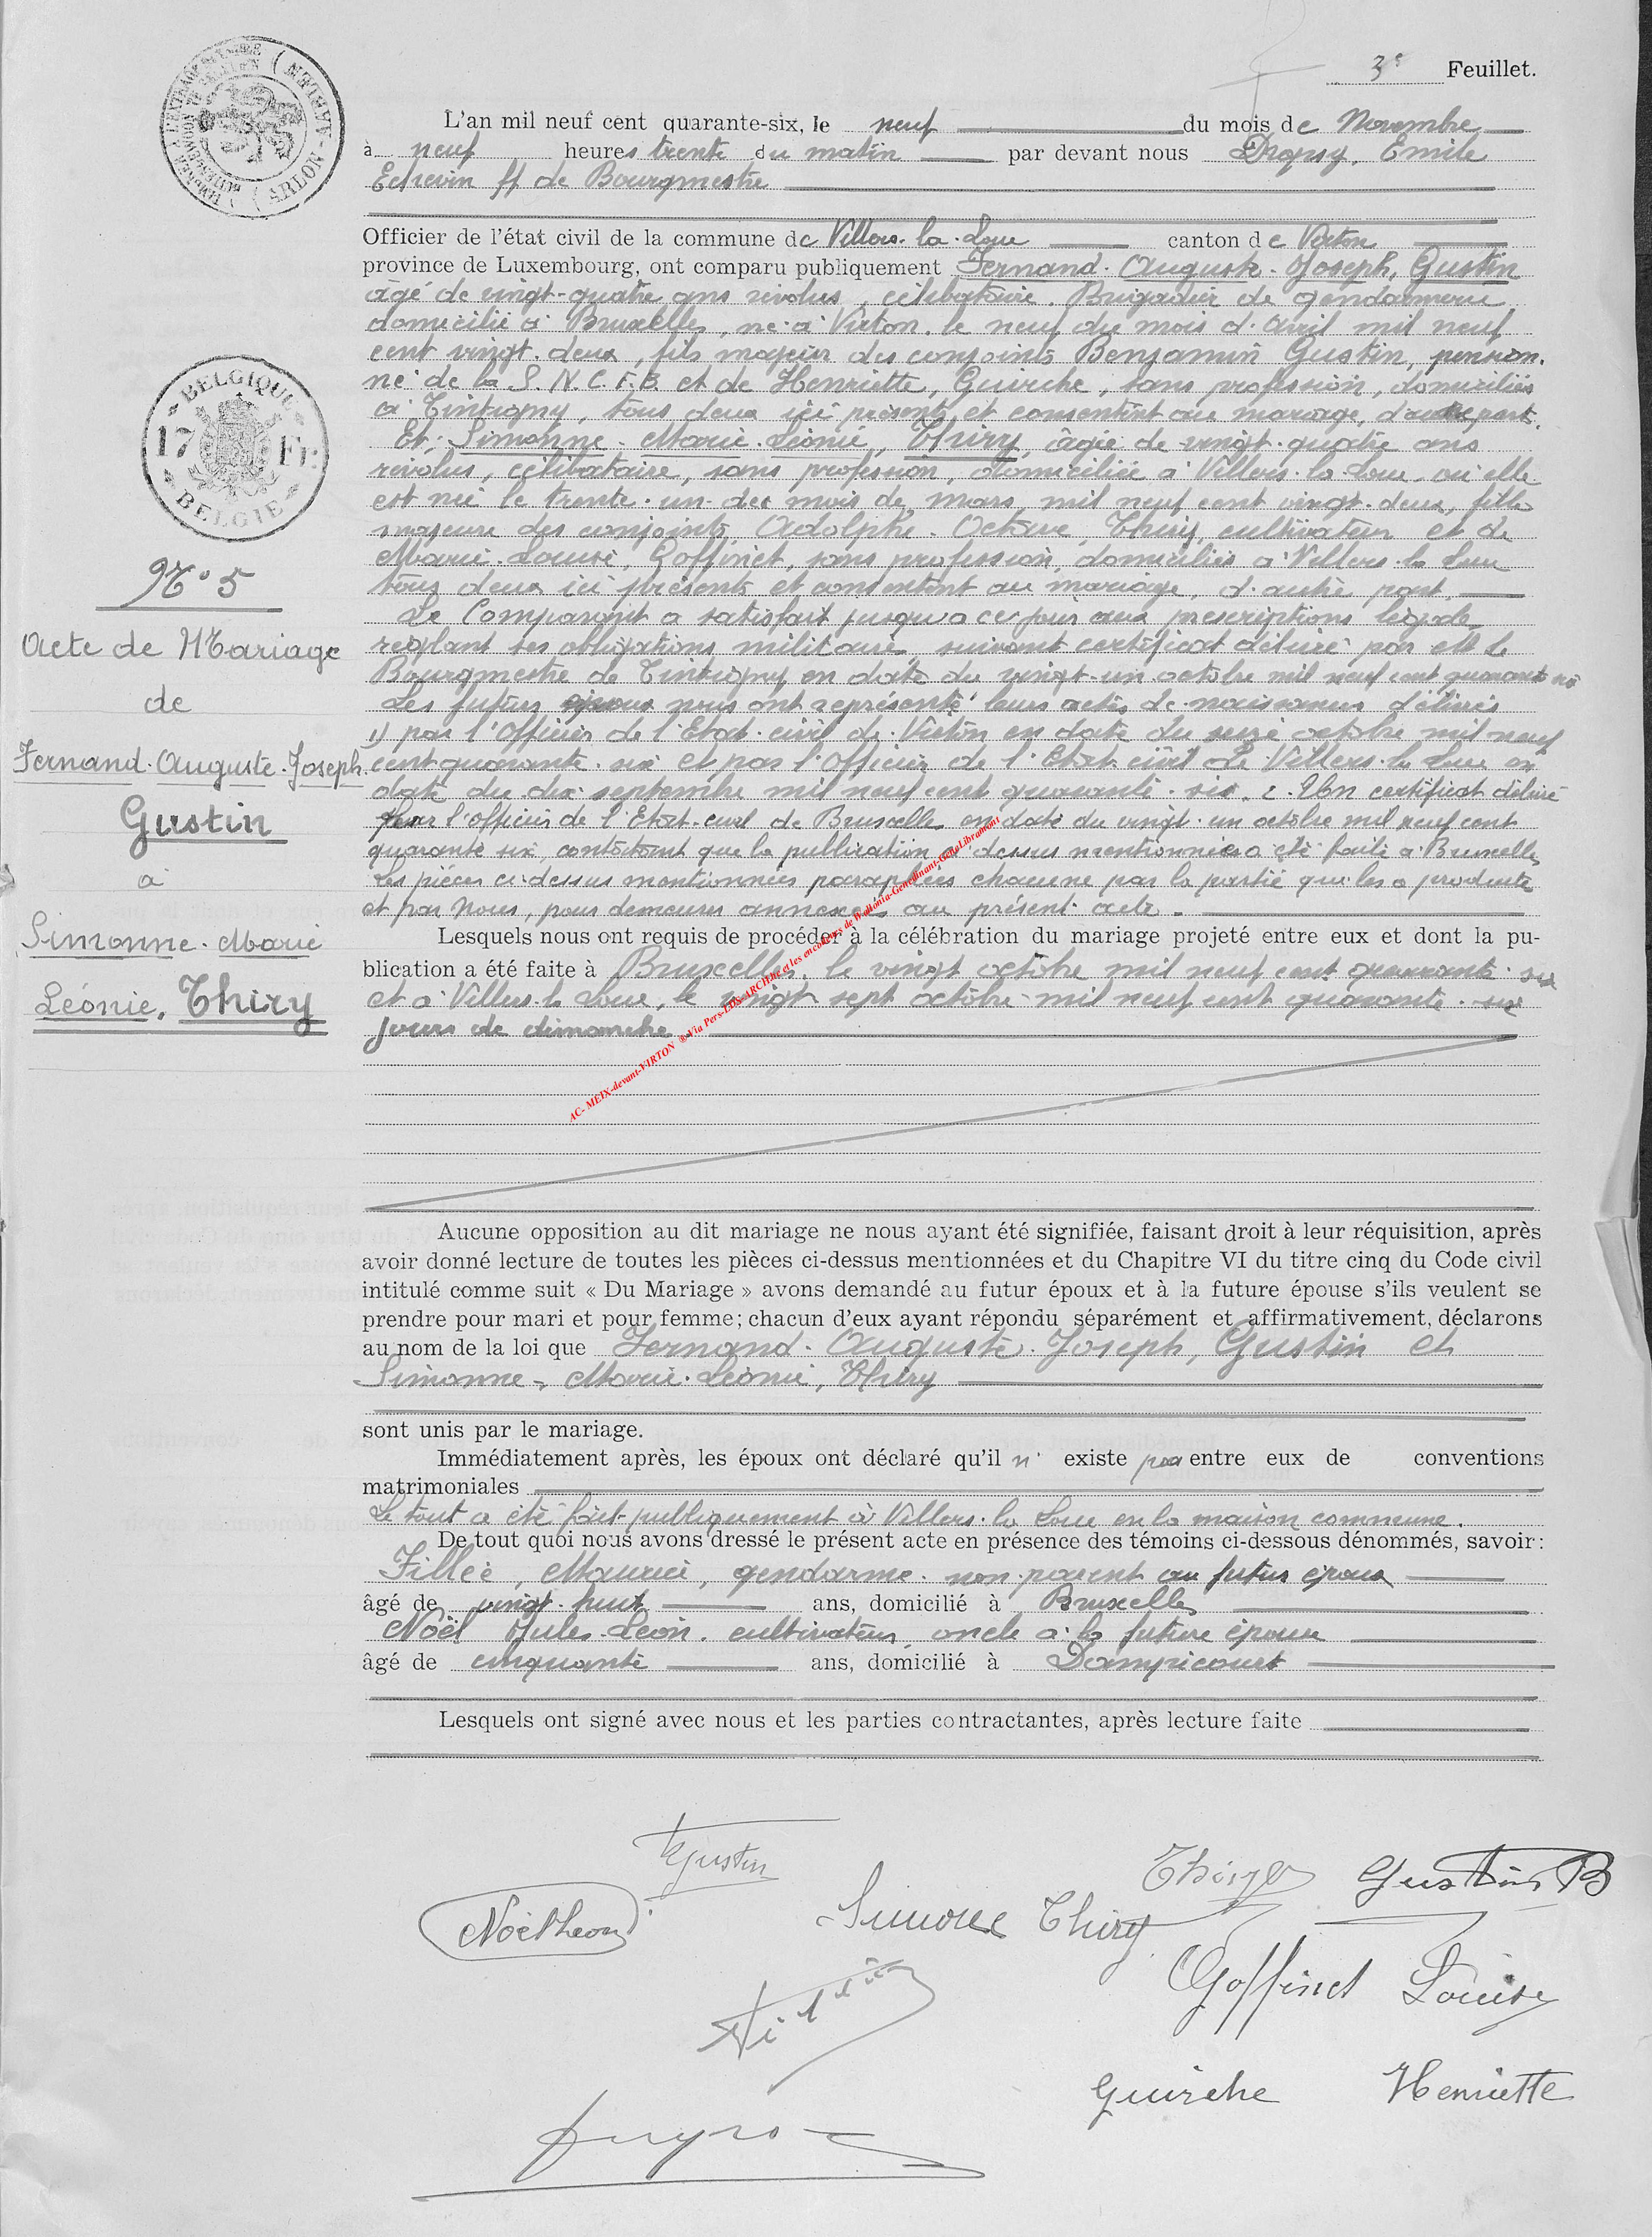 3e Feuillet.
L'an mil neuf cent quarante-six, le neuf du mois de Novembre
à neuf heures trente du matin par devant nous Emile
Echevin ff de Bourgmestre
Officier de l'état civil de la commune de Villers-la-Loue canton de Virton
province de Luxembourg, ont comparu publiquement Fernand-Auguste-Joseph, Gustin
âgé de vingt-quatre ans révolus, célibataire, Brigadier de gendarmerie
domicilié à Bruxelles, né à Virton, le neuf du mois d'avril mil neuf
cent vingt-deux, fils majeur des conjoints Benjamin Gustin, pension-
né de la S.N.C.F.B. et de Henriette, Guirche, sans profession, domiciliés
à Tintigny, tous deux ici présents et consentant au mariage, d'autre part.
Et: Simonne-Marie-Léonie, Thiry, âgée de vingt-quatre ans
révolus, célibataire, sans profession, domiciliée à Villers-la-Loue, où elle
est née le trente-un du mois de mars mil neuf cent vingt-deux, fille
majeure des conjoints Adolphe-Octave, Thiry, cultivateur et de
Marie-Louise, Goffinet, sans profession, domiciliés à Villers-la-Loue
tous deux ici présents et consentant au mariage, d'autre part.
Le Comparant a satisfait jusqu'à ce jour aux prescriptions légales
réglant ses obligations militaires, suivant certificat délivré par M le
Bourgmestre de Tintigny en date du vingt-un octobre mil neuf cent quarante six
Les futurs époux nous ont représenté leurs actes de naissances délivrés
1) par l'Officier de l'Etat-civil de Virton en date du seize octobre mil neuf
cent quarante-six et par l'Officier de l'Etat-civil de Villers-la-Loue en
date du dix septembre mil neuf cent quarante-six. 2. Un certificat délivré
par l'officier de l'Etat-civil de Bruxelles en date du vingt-un octobre mil neuf cent
quarante six, contatant que la publication ci-dessus mentionnée a été faite à Bruxelles
Les pièces ci-dessus mentionnées paraphées chacune par la partie qui les a produite
et par Nous, pour demeurer annexées au présent acte.
Lesquels nous ont requis de procéder à la célébration du mariage projeté entre eux et dont la pu-
blication a été faite à Bruxelles, le vingt octobre mil neuf cent quarante-six
et à Villers-la-Loue, le vingt sept octobre mil neuf cent quarante-six
jours de dimanche
Aucune opposition au dit mariage ne nous ayant été signifiée, faisant droit à leur réquisition, après
avoir donné lecture de toutes les pièces ci-dessus mentionnées et du Chapitre VI du titre cinq du Code civil
intitulé comme suit « Du Mariage » avons demandé au futur époux et à la future épouse s'ils veulent se
prendre pour mari et pour femme; chacun d'eux ayant répondu séparément et affirmativement, déclarons
au nom de la loi que Fernand-Auguste-Joseph, Gustin et
Simonne-Marie-Léonie, Thiry
sont unis par le mariage.
Immédiatement après, les époux ont déclaré qu'il n' existe pas entre eux de conventions
matrimoniales
Le tout a été fait publiquement à Villers-la-Loue en la maison commune.
De tout quoi nous avons dressé le présent acte en présence des témoins ci-dessous dénommés, savoir:
Fillée, Maurice, gendarme, non parent au futur époux
âgé de vingt-huit ans, domicilié à Bruxelles
Noël Jules-Léon, cultivateur, oncle à la future épouse
âgé de cinquante ans, domicilié à Dampicourt
Lesquels ont signé avec nous et les parties contractantes, après lecture faite
BELGIQUE
17 Fr.
BELGIE
ARLON-AARLEN
No 5
Acte de Mariage
de
Fernand-Auguste-Joseph
Gustin
à
Simonne-Marie
Léonie, Thiry
AC- MEIX-devant-VIRTON
Gustin
Thiry
Gustin B
Noël Leon
Simone Thiry
Goffinet Louise
Guirche Henriette